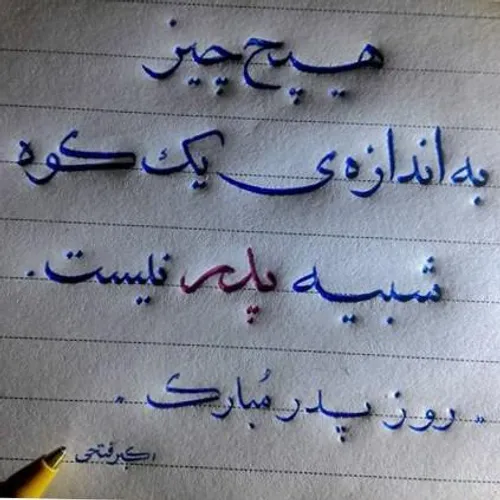 هیچ چیز
به اندازه‌ی یک کوه
شبیه پدر نیست.
"روز پدر مُبارک."
اکبر فتحی